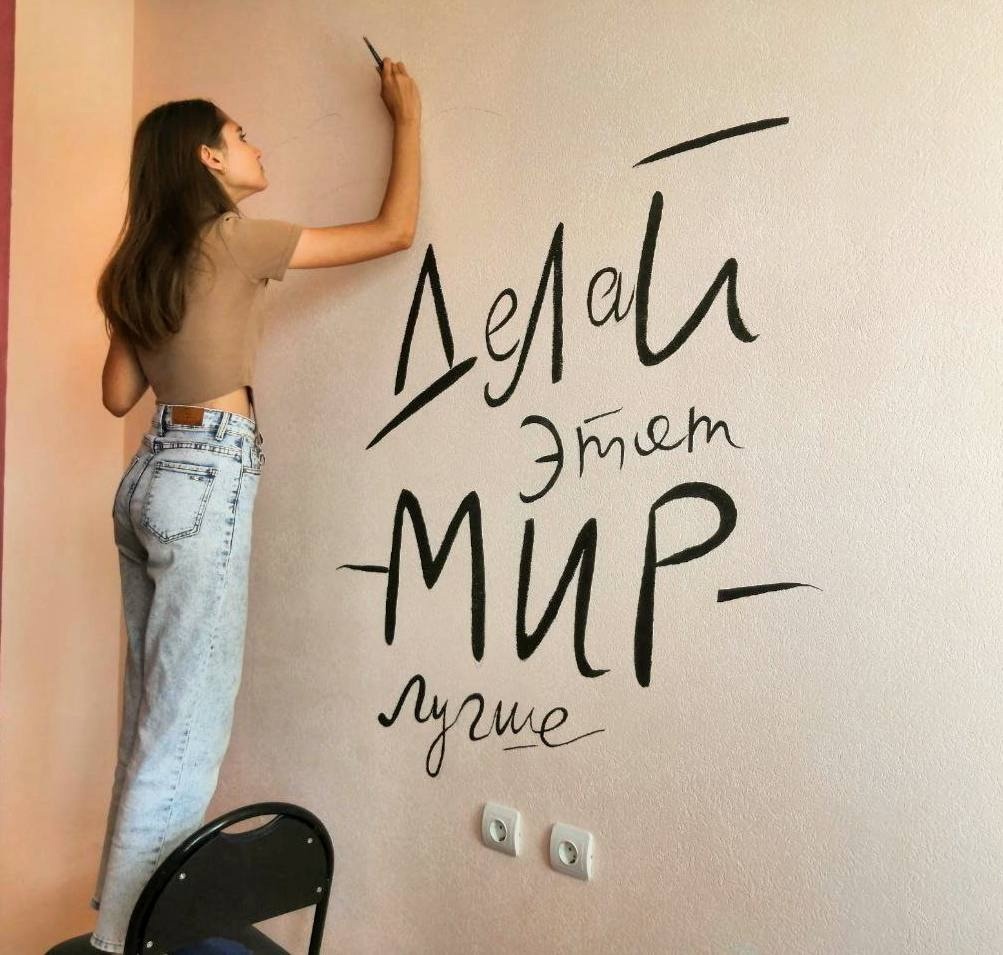 Делай
этот
МИР
лучше